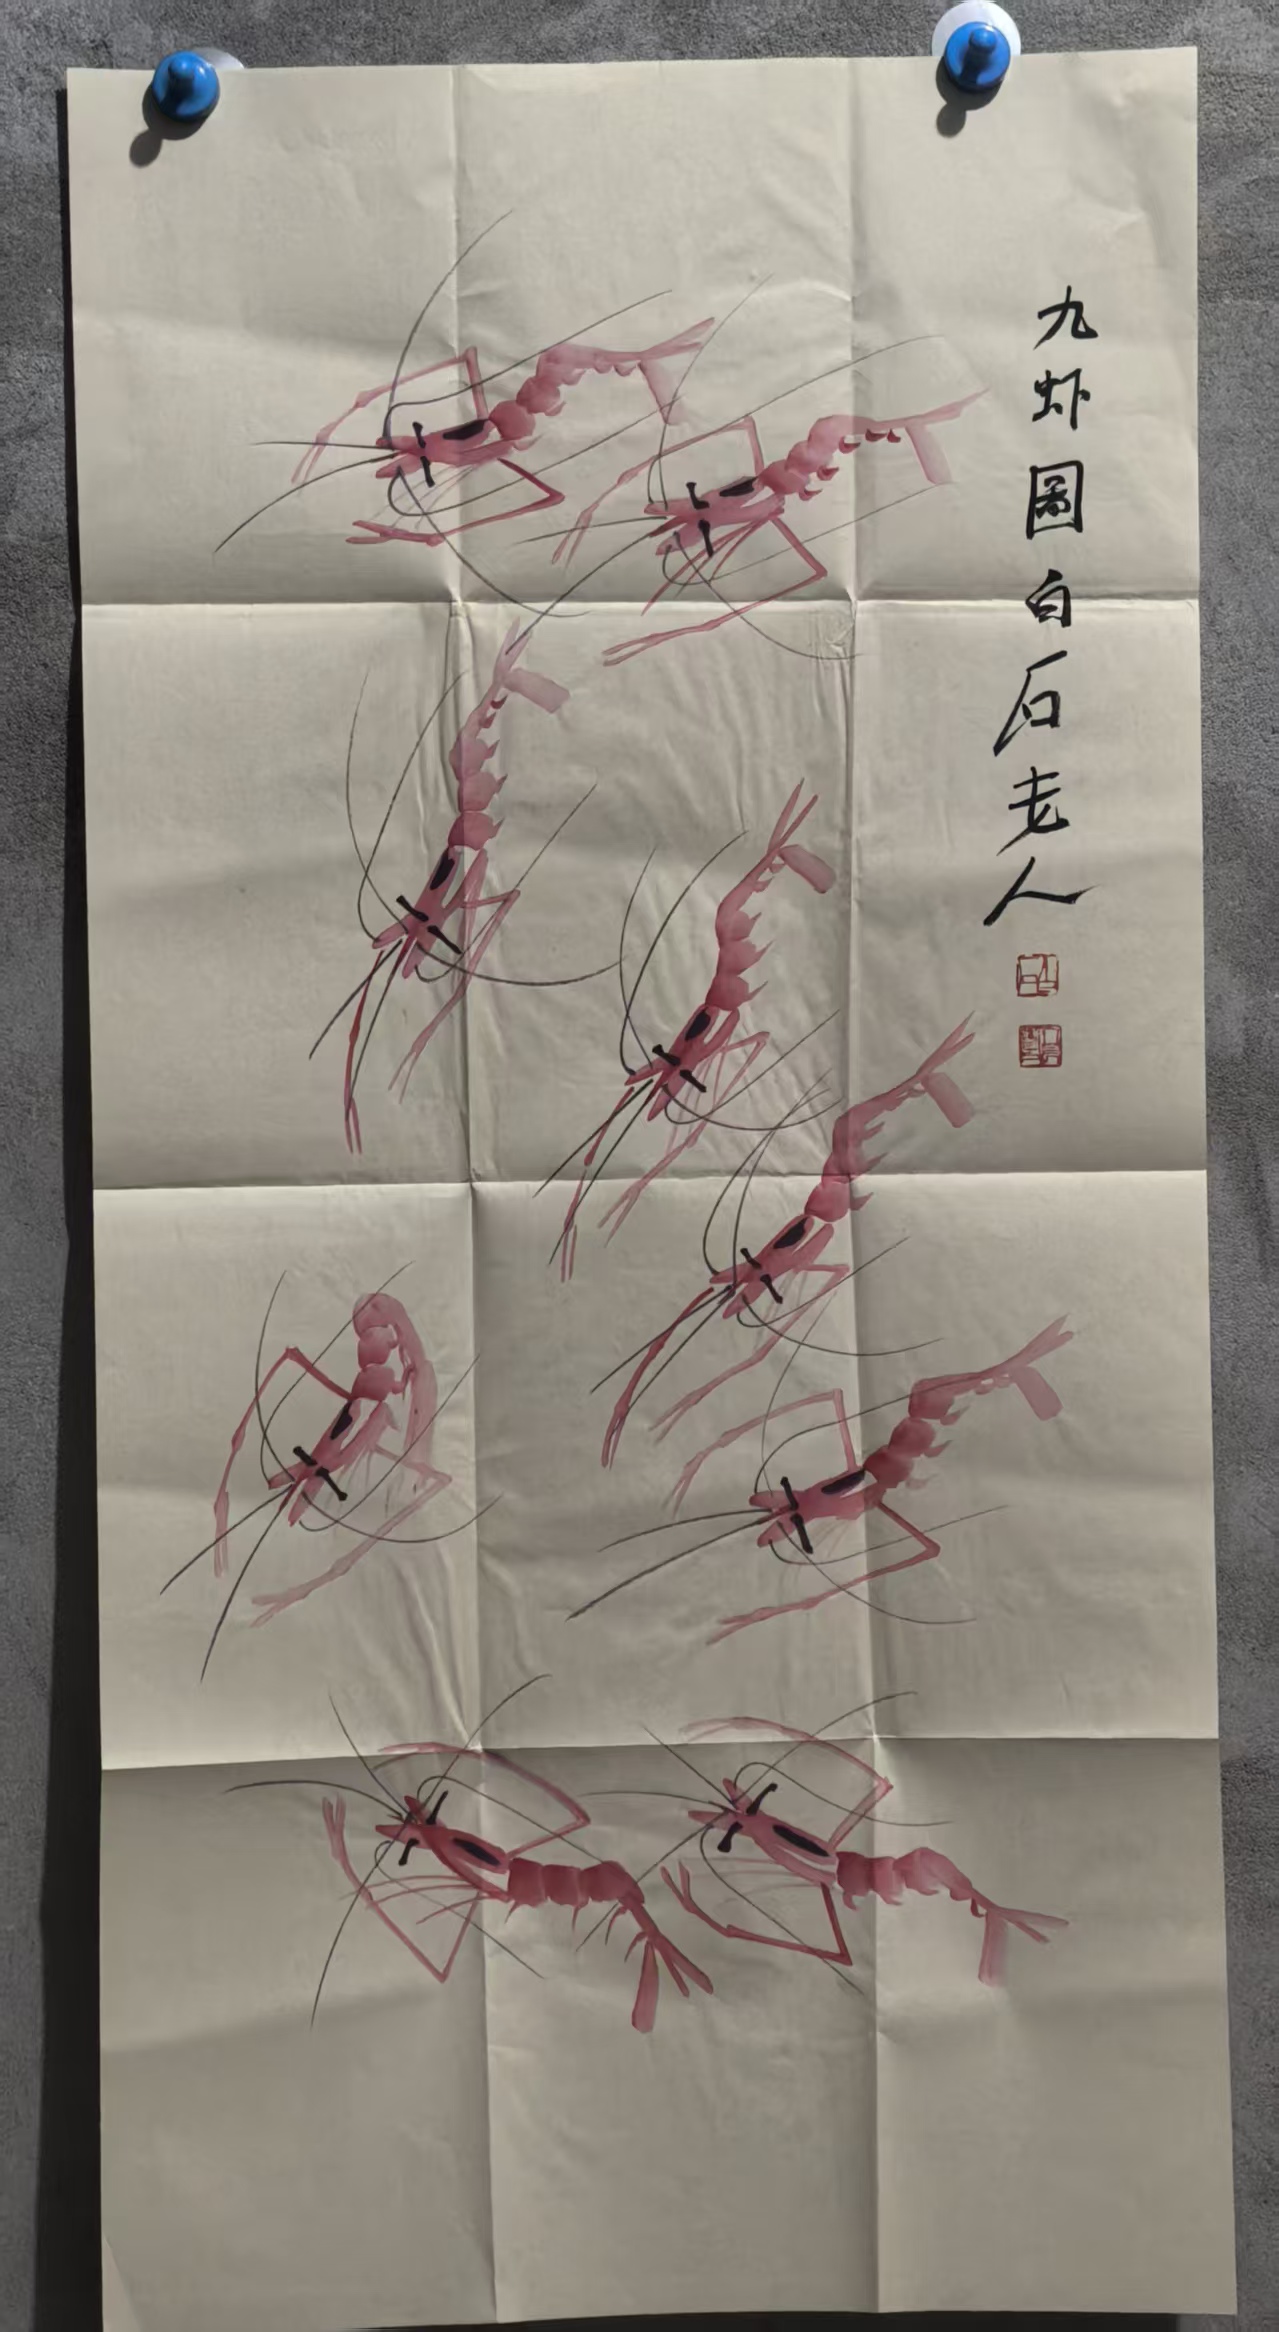 九虾圖白石老人